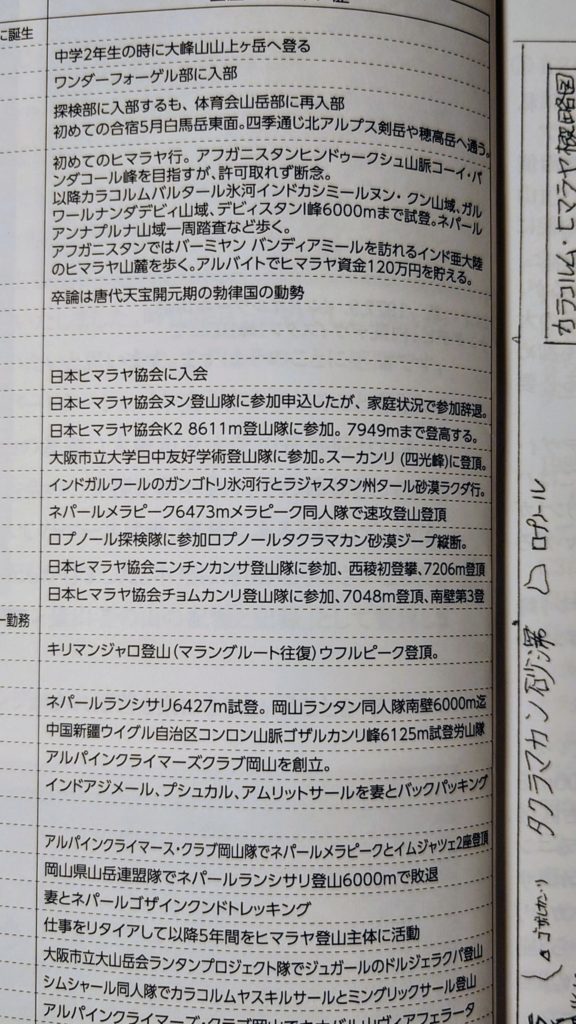 に誕生
中学2年生の時に大峰山山上ヶ岳へ登る
ワンダーフォーゲル部に入部
探検部に入部するも、体育会山岳部に再入部
初めての合宿5月白馬岳東面。四季通じ北アルプス剣岳や穂高岳へ通う。
初めてのヒマラヤ行。アフガニスタンヒンドゥークシュ山脈コーイ・バ
ンダコール峰を目指すが、許可取れず断念。
以降カラコルムバルタール氷河インドカシミールヌン・クン山域、ガル
ワールナンダデビィ山域、デビィスタンI峰6000mまで試登。ネパール
アンナプルナ山域一周踏査など歩く。
アフガニスタンではバーミヤン バンディアミールを訪れるインド亜大陸
のヒマラヤ山麓を歩く。アルバイトでヒマラヤ資金120万円を貯える。
卒論は唐代天宝開元期の勃律国の動勢
日本ヒマラヤ協会に入会
日本ヒマラヤ協会ヌン登山隊に参加申込したが、家庭状況で参加辞退。
日本ヒマラヤ協会K2 8611m登山隊に参加。7949mまで登高する。
大阪市立大学日中友好学術登山隊に参加。スーカンリ(四光峰)に登頂。
インドガルワールのガンゴトリ氷河行とラジャスタン州タール砂漠ラクダ行。
ネパールメラピーク6473mメラピーク同人隊で速攻登山登頂
ロプノール探検隊に参加ロプノールタクラマカン砂漠ジープ縦断。
日本ヒマラヤ協会ニンチンカンサ登山隊に参加、西稜初登攀、7206m登頂
日本ヒマラヤ協会チョムカンリ登山隊に参加、7048m登頂、南壁第3登
ー勤務
キリマンジャロ登山(マラングルート往復)ウフルピーク登頂。
ネパールランシサリ6427m試登。岡山ランタン同人隊南壁6000m迄
中国新疆ウイグル自治区コンロン山脈ゴザルカンリ峰6125m試登労山隊
アルパインクライマーズクラブ岡山を創立。
インドアジメール、プシュカル、アムリットサールを妻とバックパッキング
アルパインクライマース・クラブ岡山隊でネパールメラピークとイムジャツェ2座登頂
岡山県山岳連盟隊でネパールランシサリ登山6000mで敗退
妻とネパールゴザインクンドトレッキング
仕事をリタイアして以降5年間をヒマラヤ登山主体に活動
大阪市立大山岳会ランタンプロジェクト隊でジュガールのドルジェラクパ登山
シムシャール同人隊でカラコルムヤスキルサールとミングリックサール登山
カラコルム・ヒマラヤ概略図
ロプノール
タクラマカン砂漠